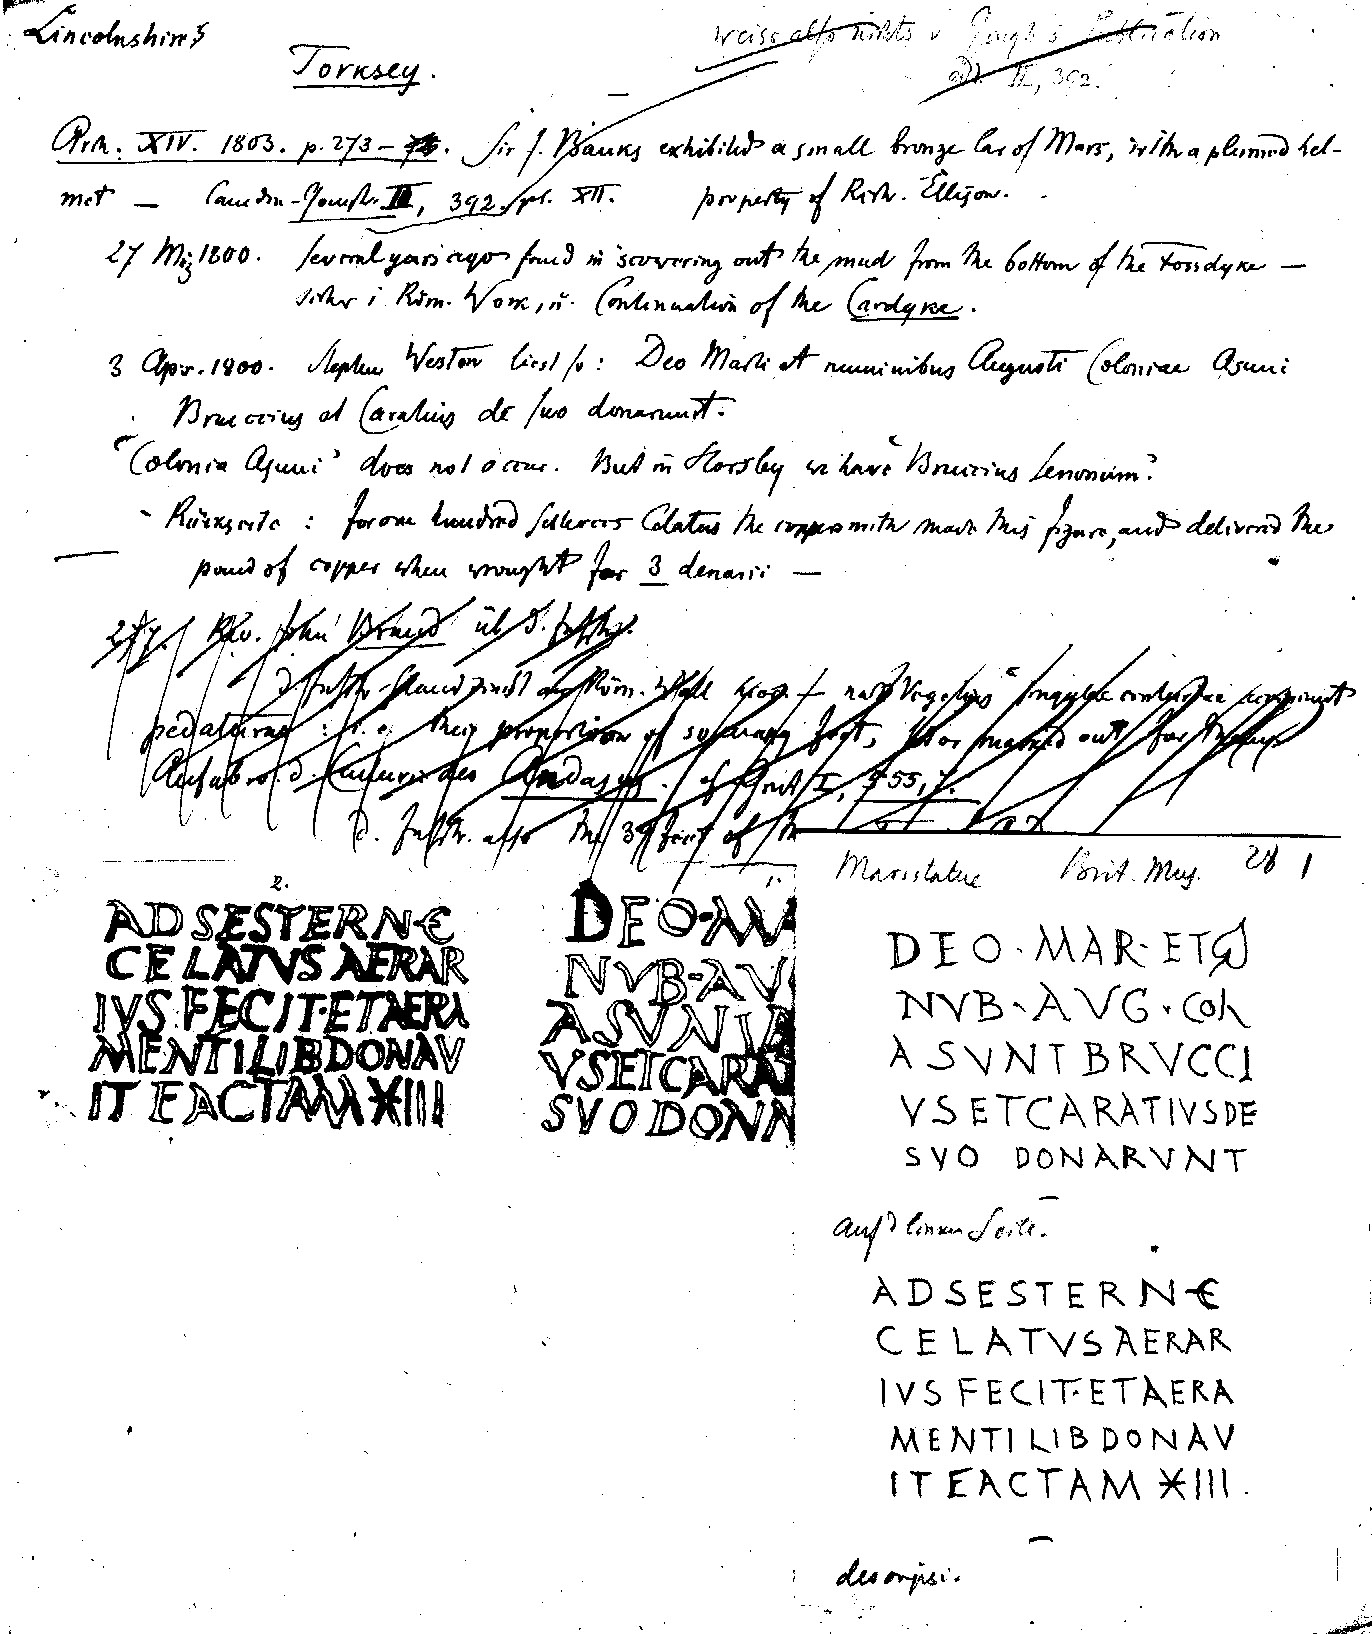 Lincolnshire
weiss also nichts v Gough's Publication
II, 392.
Torksey.
Arch. XIV. 1803. p. 273 – Sir J. Banks exhibited a small bronze Lar of Mars, with a plumed hel-
met — Camden-Gough. II, 392. pl. XII. property of Rich. Ellison.
27 Mz 1800. several years ago found in scowering out the mud from the bottom of the Fossdyke —
Röm. Work, u. Continuation of the Cardyke.
3 Apr. 1800. Stephen Weston liest so: Deo Marti et numinibus Augusti Coloniae Asuni
Bruccius et Caratius de suo donarunt.
"Colonia Asuni" does not occur. But in Horsley we have "Bruccius Senonum".
- Rückseite: for one hundred sesterces Celatus the coppersmith made this figure, and delivered the
pound of copper when wrought for 3 denarii —
Rev. John Brand üb. d. Inschr.
Röm. Wall nach Vegetius singulae centuriae accipiunt
pedaturas: i. e. their proportion of so many feet, was out for them
d. Centurie des Andasys. I, 555, 7.
D. Inschr. also the 39 feet of the
2.
ADSESTERN€
CELATVSAERAR
IVSFECIT·ETAERA
MENTILIBDONAV
ITEACTAMXIII
1.
DEO·MA
NVB·AV
ASVNIB
VSETCARA
SVODONA
Marsstatue Brit. Mus. 28 1
DEO·MAR·ET
NVB·AVG·COL
ASVNTBRVCCI
VSETCARATIVSDE
SVO DONARVNT
auf d linken Seite.
ADSESTERN€
CELATVSAERAR
IVSFECIT·ETAERA
MENTILIBDONAV
ITEACTAMXIII.
descripsi.